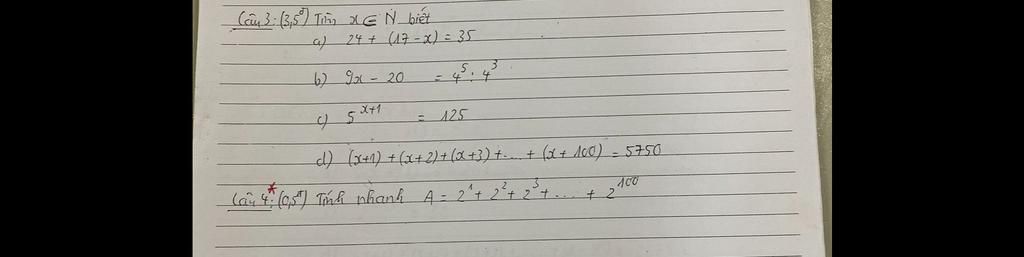 Câu 3: (3,5đ) Tìm x ∈ N biết
a) 24 + (17 - x) = 35
b) 9x - 20 = 4⁵ : 4³
c) 5ˣ⁺¹ = 125
d) (x+1) + (x+2) + (x+3) + ... + (x + 100) = 5750
Câu 4*: (0,5đ) Tính nhanh A = 2¹ + 2² + 2³ + ... + 2¹⁰⁰